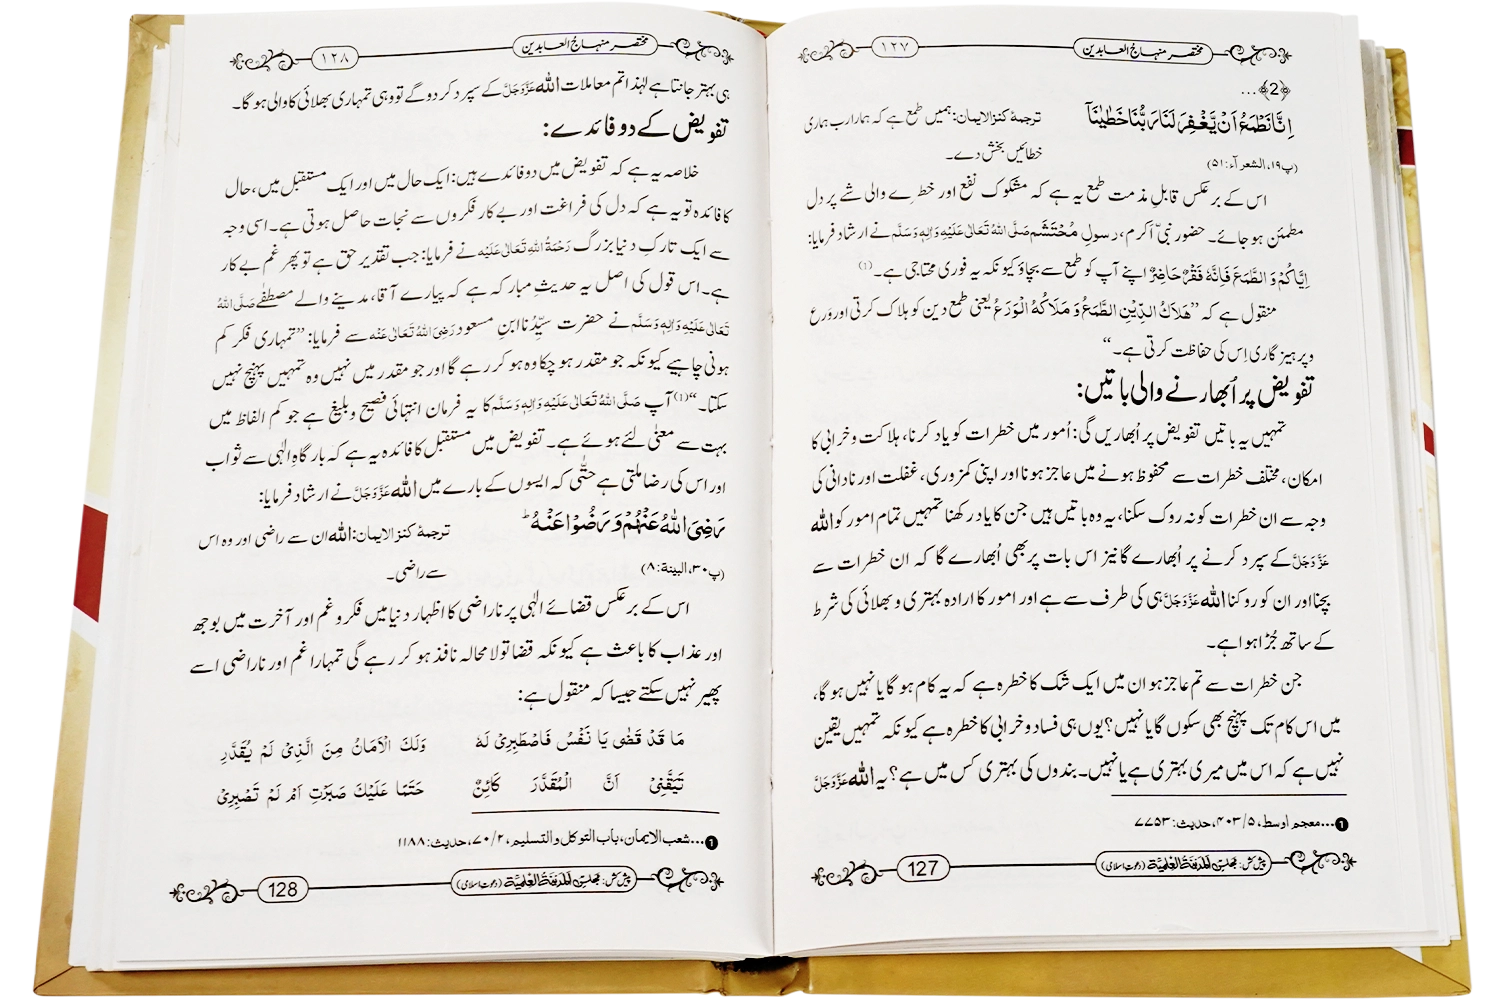 مختصر منہاجُ العابدین
۱۲۷
﴿2﴾…
اِنَّا نَطْمَعُ اَنْ یَّغْفِرَ لَنَا رَبُّنَا خَطٰیٰنَاۤ
ترجمۂ کنز الایمان: ہمیں طمع ہے کہ ہمارا رب ہماری
خطائیں بخش دے۔
(پ۱۹، الشعرآء: ۵۱)
اس کے برعکس قابلِ مذمت طمع یہ ہے کہ مشکوک نفع اور خطرے والی شے پر دل
مطمئن ہو جائے۔ حضور نبیِّ اکرم، رسولِ مُحْتَشَم صَلَّی اللہُ تَعَالٰی عَلَیْہِ وَاٰلِہٖ وَسَلَّم نے ارشاد فرمایا:
اِیَّاکُمْ وَ الطَّمَعَ فَاِنَّہٗ فَقْرٌ حَاضِرٌ اپنے آپ کو طمع سے بچاؤ کیونکہ یہ فوری محتاجی ہے۔(۱)
منقول ہے کہ ”ھَلَاکُ الدِّیْنِ الطَّمَعُ وَ مَلَاکُہُ الْوَرَعُ یعنی طمع دین کو ہلاک کرتی اور وَرَع
و پرہیز گاری اِس کی حفاظت کرتی ہے۔“
تفویض پر اُبھارنے والی باتیں:
تمہیں یہ باتیں تفویض پر اُبھاریں گی: اُمور میں خطرات کو یاد کرنا، ہلاکت و خرابی کا
امکان، مختلف خطرات سے محفوظ ہونے میں عاجز ہونا اور اپنی کمزوری، غفلت اور نادانی کی
وجہ سے ان خطرات کو نہ روک سکنا، یہ وہ باتیں ہیں جن کا یاد رکھنا تمہیں تمام امور کو اللہ
عَزَّوَجَلَّ کے سپرد کرنے پر اُبھارے گا نیز اس بات پر بھی اُبھارے گا کہ ان خطرات سے
بچنا اور ان کو روکنا اللہ عَزَّوَجَلَّ ہی کی طرف سے ہے اور امور کا ارادہ بہتری و بھلائی کی شرط
کے ساتھ جُڑا ہوا ہے۔
جن خطرات سے تم عاجز ہو ان میں ایک شک کا خطرہ ہے کہ یہ کام ہو گا یا نہیں ہو گا،
میں اس کام تک پہنچ بھی سکوں گا یا نہیں؟ یوں ہی فساد و خرابی کا خطرہ ہے کیونکہ تمہیں یقین
نہیں ہے کہ اس میں میری بہتری ہے یا نہیں۔ بندوں کی بہتری کس میں ہے؟ یہ اللہ عَزَّوَجَلَّ
❶…معجم اوسط، ۵/ ۴۰۳، حدیث: ۷۷۵۳
پیش کش: مجلس اَلْمَدِیْنَۃُ الْعِلْمِیَّۃ (دعوتِ اسلامی)
127
مختصر منہاجُ العابدین
۱۲۸
ہی بہتر جانتا ہے لہٰذا تم معاملات اللہ عَزَّوَجَلَّ کے سپرد کر دو گے تو وہی تمہاری بھلائی کا والی ہو گا۔
تفویض کے دو فائدے:
خلاصہ یہ ہے کہ تفویض میں دو فائدے ہیں: ایک حال میں اور ایک مستقبل میں، حال
کا فائدہ تو یہ ہے کہ دل کی فراغت اور بے کار فکروں سے نجات حاصل ہوتی ہے۔ اسی وجہ
سے ایک تارکِ دنیا بزرگ رَحْمَۃُ اللہِ تَعَالٰی عَلَیْہ نے فرمایا: جب تقدیر حق ہے تو پھر غم بے کار
ہے۔ اس قول کی اصل یہ حدیثِ مبارکہ ہے کہ پیارے آقا، مدینے والے مصطفٰے صَلَّی اللہُ
تَعَالٰی عَلَیْہِ وَاٰلِہٖ وَسَلَّم نے حضرت سیِّدُنا ابنِ مسعود رَضِیَ اللہُ تَعَالٰی عَنْہ سے فرمایا: ”تمہاری فکر کم
ہونی چاہیے کیونکہ جو مقدر ہو چکا وہ ہو کر رہے گا اور جو مقدر میں نہیں وہ تمہیں پہنچ نہیں
سکتا۔“(۱) آپ صَلَّی اللہُ تَعَالٰی عَلَیْہِ وَاٰلِہٖ وَسَلَّم کا یہ فرمان انتہائی فصیح و بلیغ ہے جو کم الفاظ میں
بہت سے معنٰی لئے ہوئے ہے۔ تفویض میں مستقبل کا فائدہ یہ ہے کہ بارگاہِ الٰہی سے ثواب
اور اس کی رضا ملتی ہے حتّٰی کہ ایسوں کے بارے میں اللہ عَزَّوَجَلَّ نے ارشاد فرمایا:
رَضِیَ اللّٰهُ عَنْهُمْ وَ رَضُوْا عَنْهُؕ
ترجمۂ کنز الایمان: اللہ ان سے راضی اور وہ اس
سے راضی۔
(پ۳۰، البینة: ۸)
اس کے برعکس قضائے الٰہی پر ناراضی کا اظہار دنیا میں فکر و غم اور آخرت میں بوجھ
اور عذاب کا باعث ہے کیونکہ قضا تو لامحالہ نافذ ہو کر رہے گی تمہارا غم اور ناراضی اسے
پھیر نہیں سکتے جیسا کہ منقول ہے:
مَا قَدْ قَضٰی یَا نَفْسُ فَاصْطَبِرِیْ لَہٗ وَلَکِ الْاَمَانُ مِنَ الَّذِیْ لَمْ یُقَدَّرِ
تَیَقَّنِیْ اَنَّ الْمُقَدَّرَ کَائِنٌ حَتْمًا عَلَیْکَ صَبَرْتِ اَمْ لَمْ تَصْبِرِیْ
❶…شعب الایمان، باب التوکل والتسلیم، ۲/ ۷۰، حدیث: ۱۱۸۸
پیش کش: مجلس اَلْمَدِیْنَۃُ الْعِلْمِیَّۃ (دعوتِ اسلامی)
128